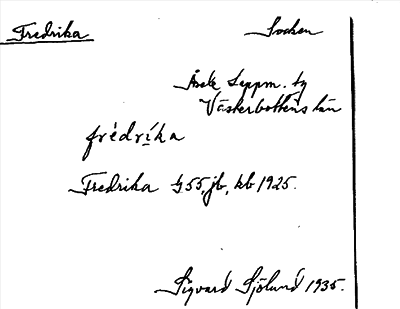 Fredrika Socken
Åsele Lappm. tg
Västerbottens län
frédrı́ka
Fredrika 55, jb, kb 1925.
Sigvard Sjölund 1935.